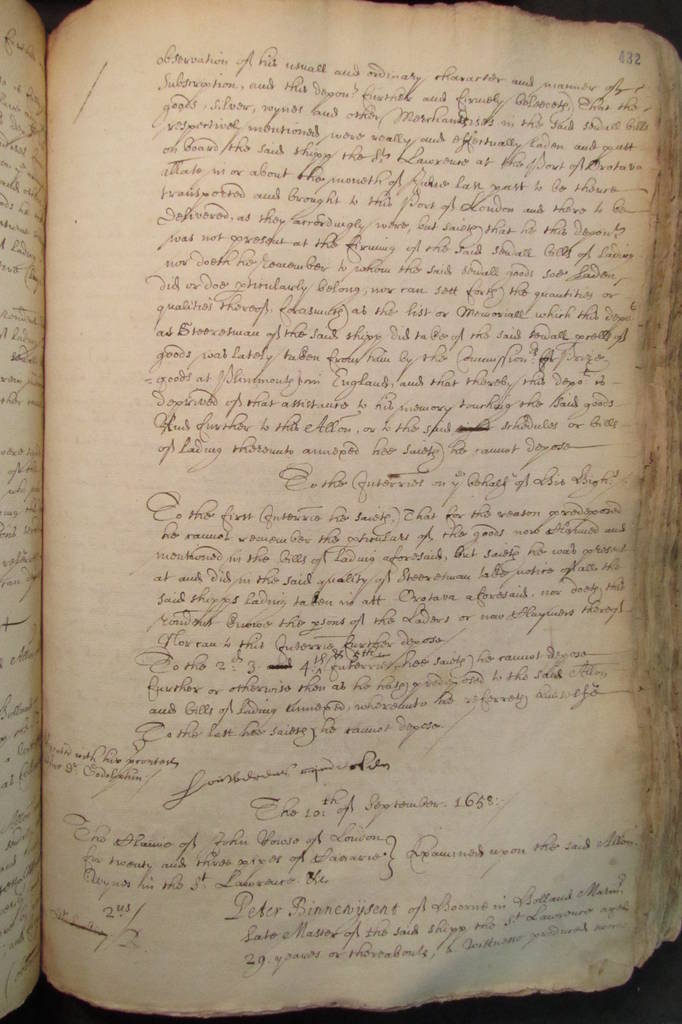 432
observation of his usuall and ordinary character and manner of
Subscription, and this depon:t further and firmely beleeveth, That the
goods, silver, wynes and other Merchandizes in the said sevall bills
respectively mentioned were really and effectually laden and putt
on board the said shipp the S:t Lawrence at the Port of Orotava
in or about the moneth of last past to be thence
transported and brought to this Port of London and there to be
delivered, as they accordingly were, but saieth that he this depon:t
was not present at the firming of the said sevall bills of lading
nor doeth he remember to whom the said sevall goods soe laden
did or doe pticularly belong, nor can sett forth the quantities or
qualities thereof, forasmuch as the list or Memoriall which this depo:t
as Steeresman of the said shipp did take of the said sevall pcells of
goods was lately taken from him by the Commission:rs for Prize
goods at Plimmouth in England, and that thereby this depo:t is
deprived of that assistance to his memory touching the said goods
And further to this Allon, or to the said schedules or bills
of lading thereunto annexed hee saieth he cannot depose
To the Interries on y:e behalf of His High:s
To the first Interrie he saieth, That for the reason predeposed
he cannot remember the pticulars of the goods now claymed and
mentioned in the bills of lading aforesaid, but saieth he was present
at and did in the said quality of Steeresman take notice of all the
said shipps lading taken in att Orotava aforesaid, nor doeth this
Rondent knowe the psons of the Laders or now Claymers thereof
Nor can to this Interrie further depose
To the 2:d 3 4:th & 5:th Interries hee saieth he cannot depose
further or otherwise then as he hath predeposed to the said Allon
and bills of lading annexed, whereunto he referreth himselfe
To the last hee saieth he cannot depose
with his
D:r Godolphin
The 10:th of September. 1658:
The Clayme of John Vowse of London
for twenty and three pipes of Canarie
Wynes in the S:t Lawrence &c
Examined upon the said Allon.
2:us
Peter Binnenysent of Hoerne in Holland Marin:r
late Master of the said shipp the S:t Lawrence aged
29. yeares or thereabouts, a Wittnesse produced